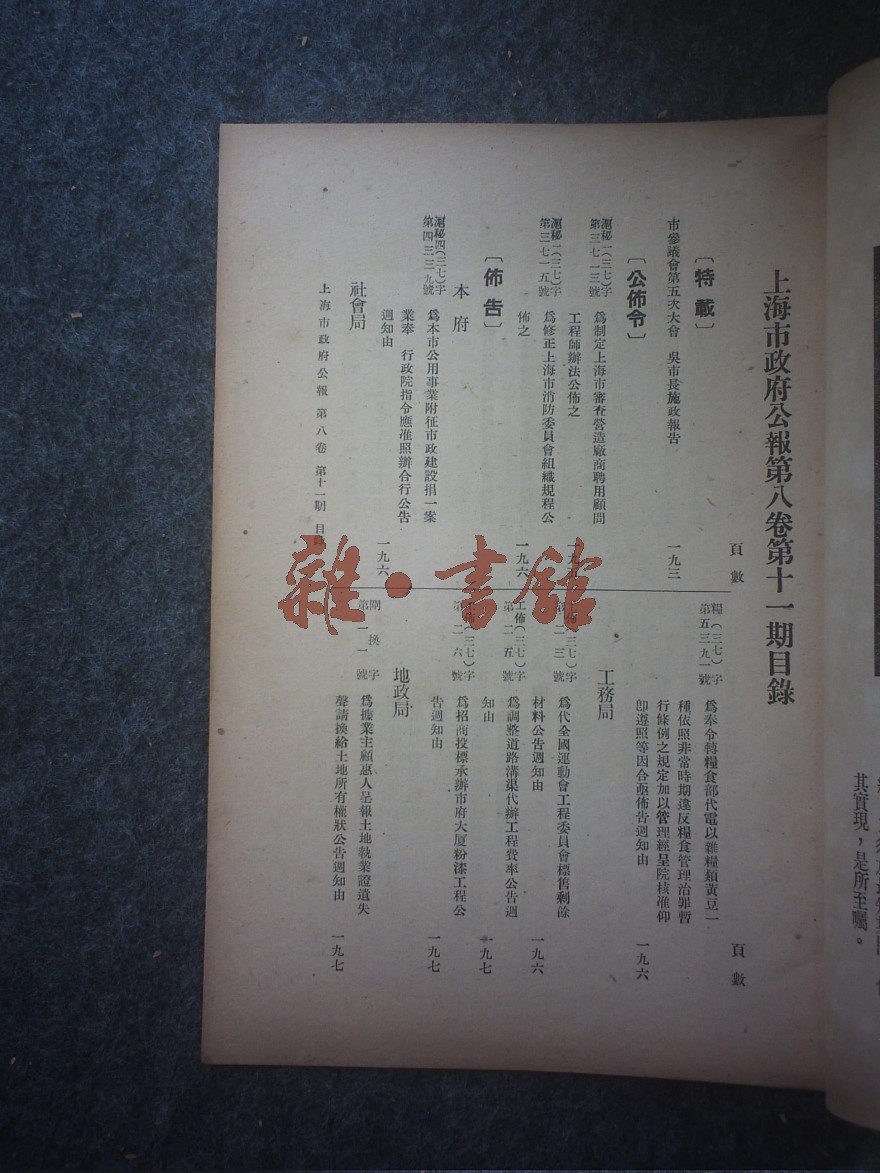 上海市政府公報第八卷第十一期目錄
頁數
〔特載〕
市參議會第五次大會　吳市長施政報告
一九三
〔公佈令〕
滬秘二(三七)字
第三七一三號
為制定上海市審查營造廠商聘用顧問
工程師辦法公佈之
滬秘二(三七)字
第三七一五號
為修正上海市消防委員會組織規程公
佈之
一九六
〔佈告〕
本府
滬秘四(三七)字
第四三三九號
為本市公用事業附征市政建設捐一案
業奉　行政院指令應准照辦合行公告
週知由
一九六
社會局
上海市政府公報　第八卷　第十一期　目
頁數
糧(三七)字
第五三九一號
為奉令轉糧食部代電以雜糧類黃豆一
種依照非常時期違反糧食管理治罪暫
行條例之規定加以管理經呈院核准仰
卽遵照等因合亟佈告週知由
一九六
工務局
佈(三七)字
二三號
為代全國運動會工程委員會標售剩餘
材料公告週知由
一九六
工佈(三七)字
第二五號
為調整道路溝渠代辦工程費率公告週
知由
一九七
佈(三七)字
第二六號
為招商投標承辦市府大厦粉漆工程公
告週知由
一九七
地政局
換字
第一一號
為據業主顧惠人呈報土地執業證遺失
聲請換給土地所有權狀公告週知由
一九七
其實現，是所至囑。
雜·書館